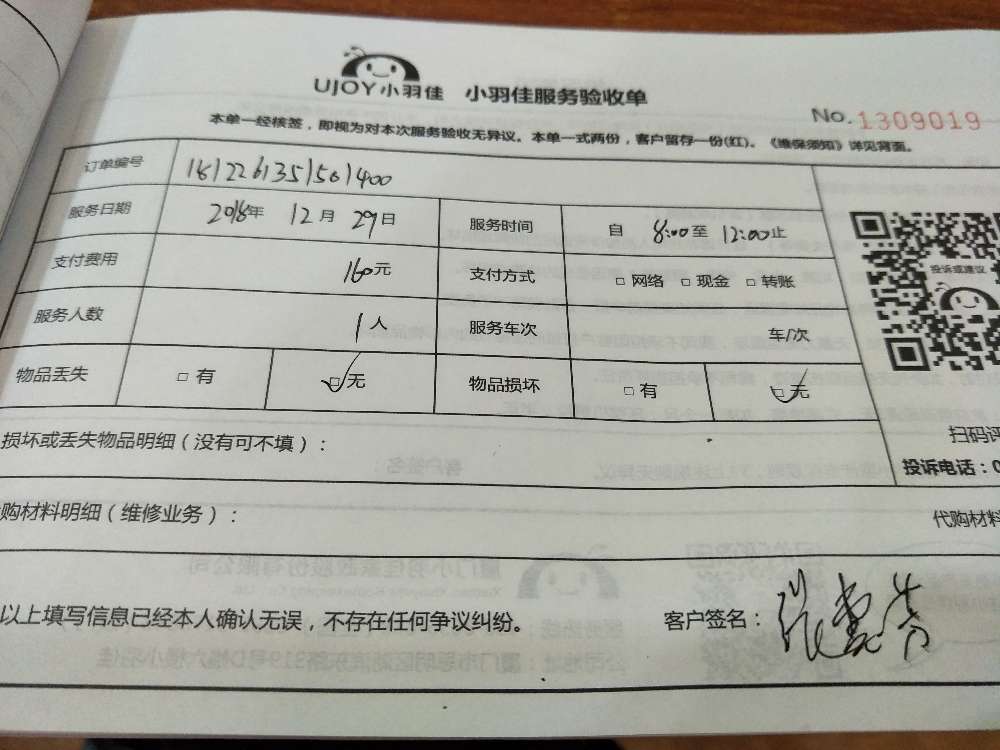 UJOY小羽佳 小羽佳服务验收单
No.1309019
本单一经核签，即视为对本次服务验收无异议。本单一式两份，客户留存一份(红)。《维保须知》详见背面。
订单编号 1812261351501400
服务日期 2018年 12月 29日 服务时间 自 8:00至 12:00止
支付费用 160元 支付方式 □ 网络 □ 现金 □ 转账
服务人数 1人 服务车次 车/次
物品丢失 □ 有 ☑ 无 物品损坏 □ 有 ☑ 无
投诉或建议
损坏或丢失物品明细（没有可不填）：
扫码评
投诉电话：0
购材料明细（维修业务）：
代购材料
以上填写信息已经本人确认无误，不存在任何争议纠纷。 客户签名：